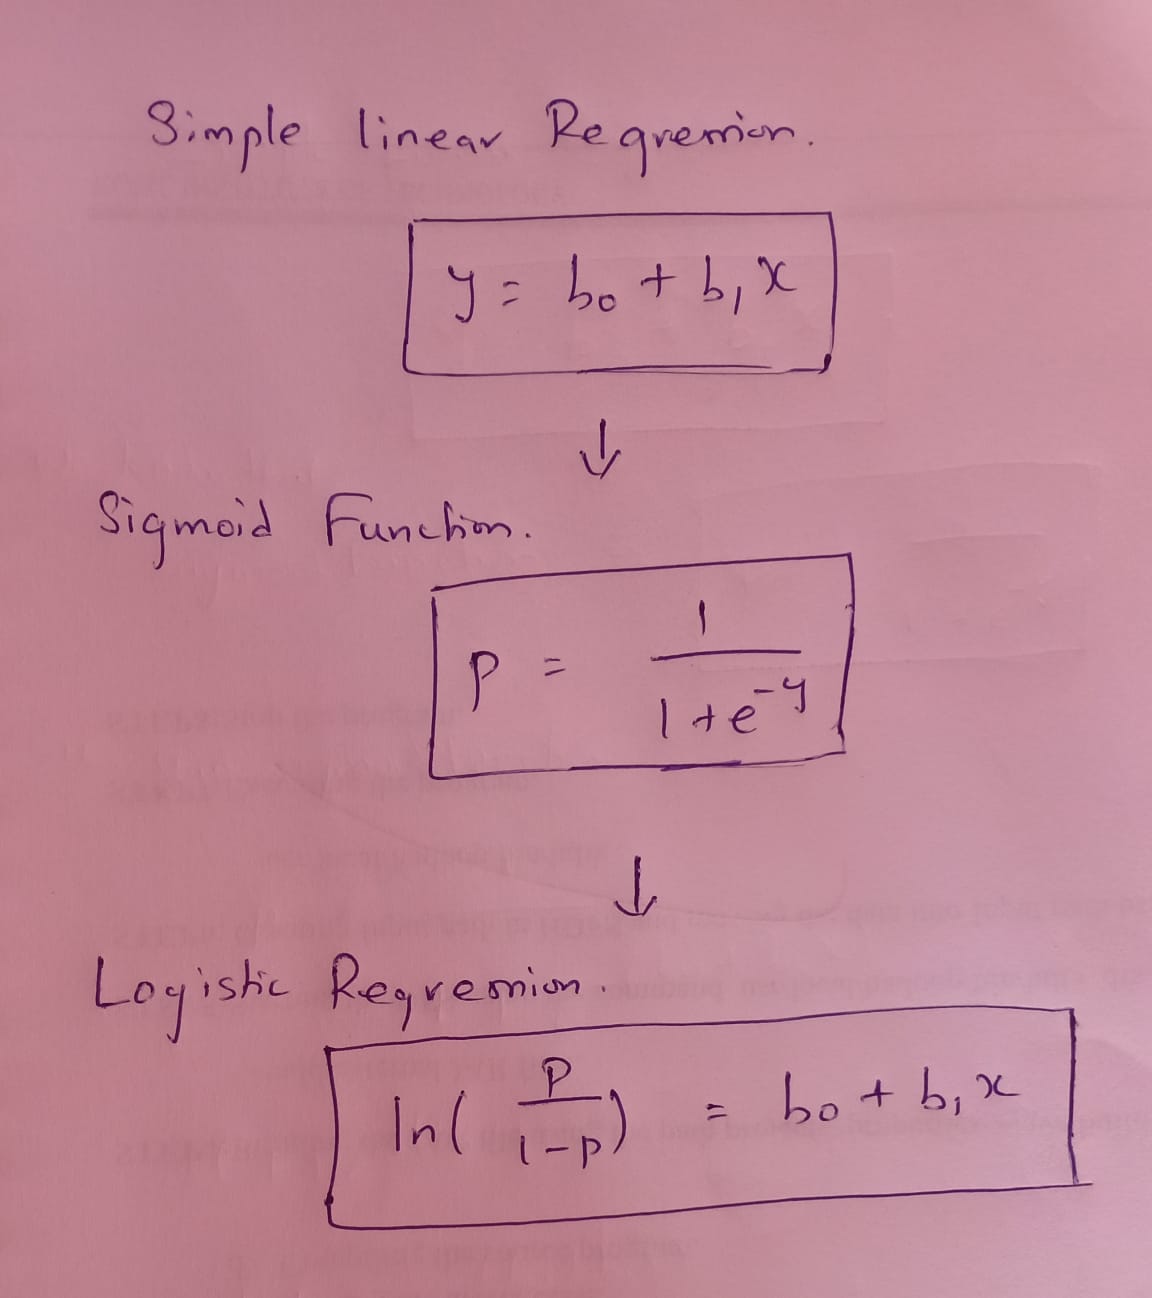 Simple linear Regression.
y = b₀ + b₁x
↓
Sigmoid Function.
p = 1 / (1 + e^-y)
↓
Logistic Regression.
ln(p / (1-p)) = b₀ + b₁x